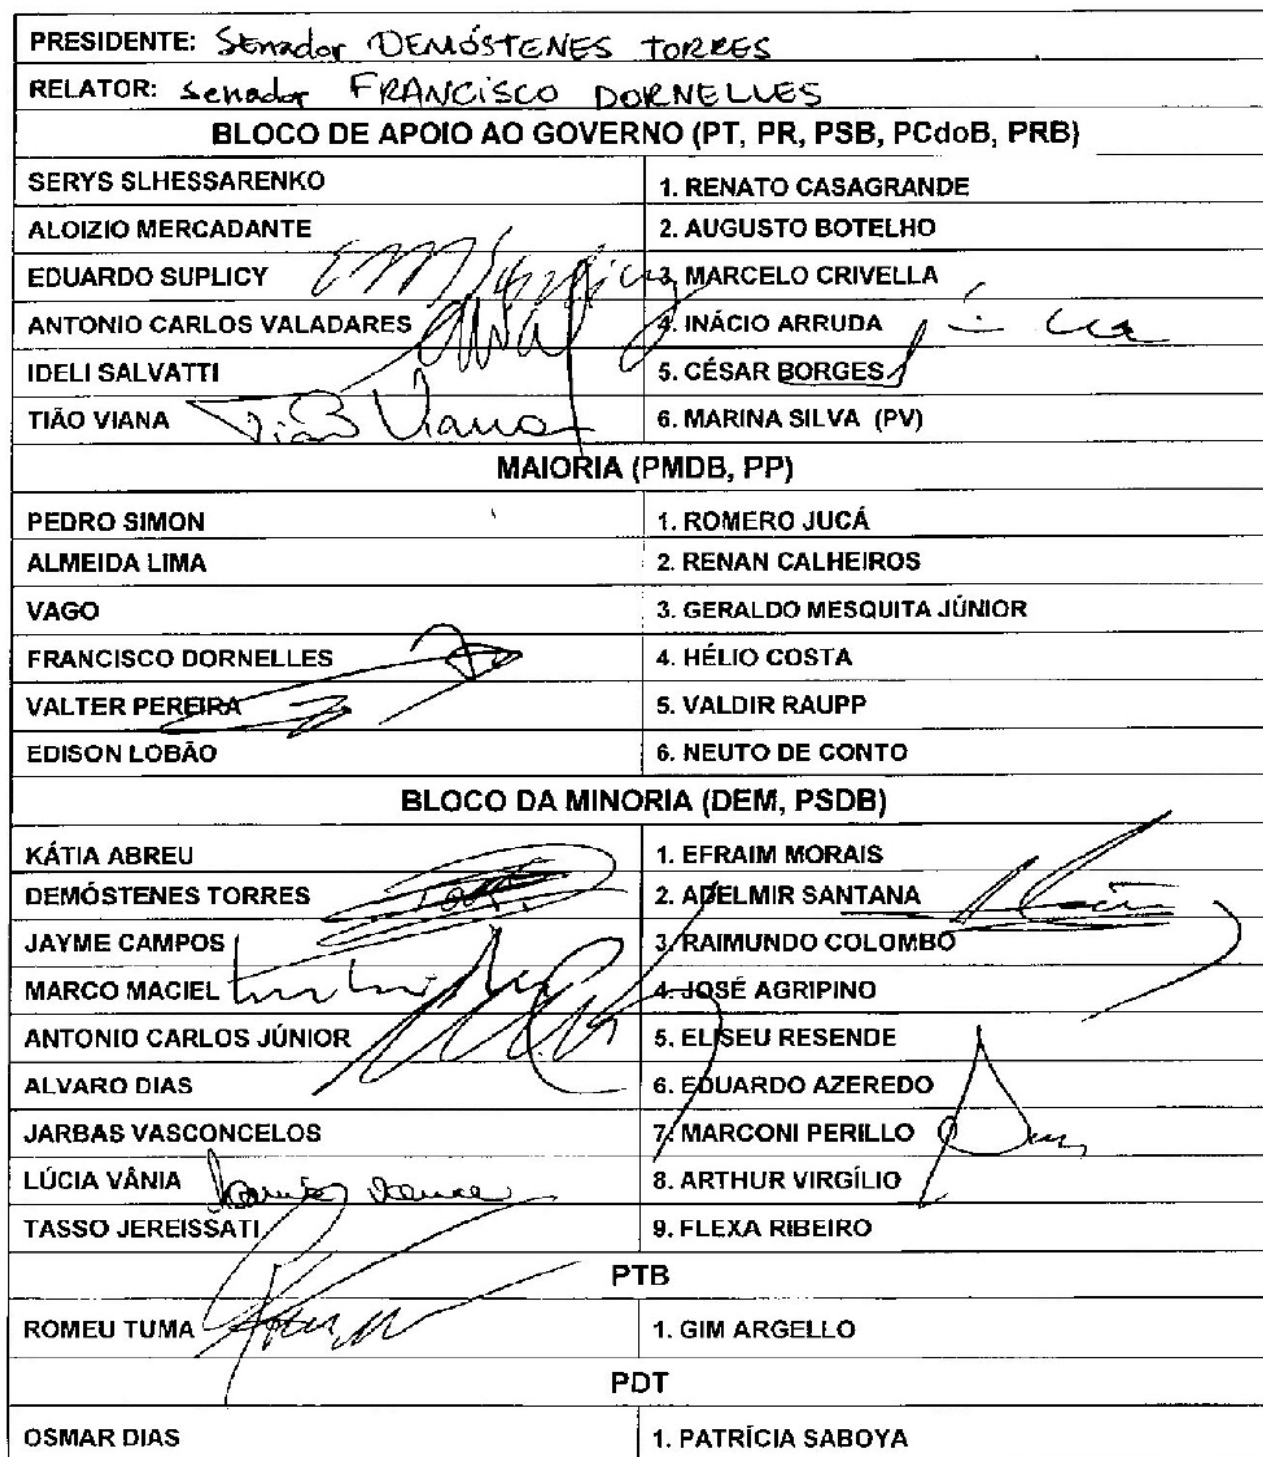 PRESIDENTE: Senador DEMÓSTENES TORRES
RELATOR: Senador FRANCISCO DORNELLES
BLOCO DE APOIO AO GOVERNO (PT, PR, PSB, PCdoB, PRB)
SERYS SLHESSARENKO 1. RENATO CASAGRANDE
ALOIZIO MERCADANTE 2. AUGUSTO BOTELHO
EDUARDO SUPLICY 3. MARCELO CRIVELLA
ANTONIO CARLOS VALADARES 4. INÁCIO ARRUDA
IDELI SALVATTI 5. CÉSAR BORGES
TIÃO VIANA Tião Viana 6. MARINA SILVA (PV)
MAIORIA (PMDB, PP)
PEDRO SIMON 1. ROMERO JUCÁ
ALMEIDA LIMA 2. RENAN CALHEIROS
VAGO 3. GERALDO MESQUITA JÚNIOR
FRANCISCO DORNELLES 4. HÉLIO COSTA
VALTER PEREIRA 5. VALDIR RAUPP
EDISON LOBÃO 6. NEUTO DE CONTO
BLOCO DA MINORIA (DEM, PSDB)
KÁTIA ABREU 1. EFRAIM MORAIS
DEMÓSTENES TORRES 2. ADELMIR SANTANA
JAYME CAMPOS 3. RAIMUNDO COLOMBO
MARCO MACIEL 4. JOSÉ AGRIPINO
ANTONIO CARLOS JÚNIOR 5. ELISEU RESENDE
ALVARO DIAS 6. EDUARDO AZEREDO
JARBAS VASCONCELOS 7. MARCONI PERILLO
LÚCIA VÂNIA 8. ARTHUR VIRGÍLIO
TASSO JEREISSATI 9. FLEXA RIBEIRO
PTB
ROMEU TUMA 1. GIM ARGELLO
PDT
OSMAR DIAS 1. PATRÍCIA SABOYA